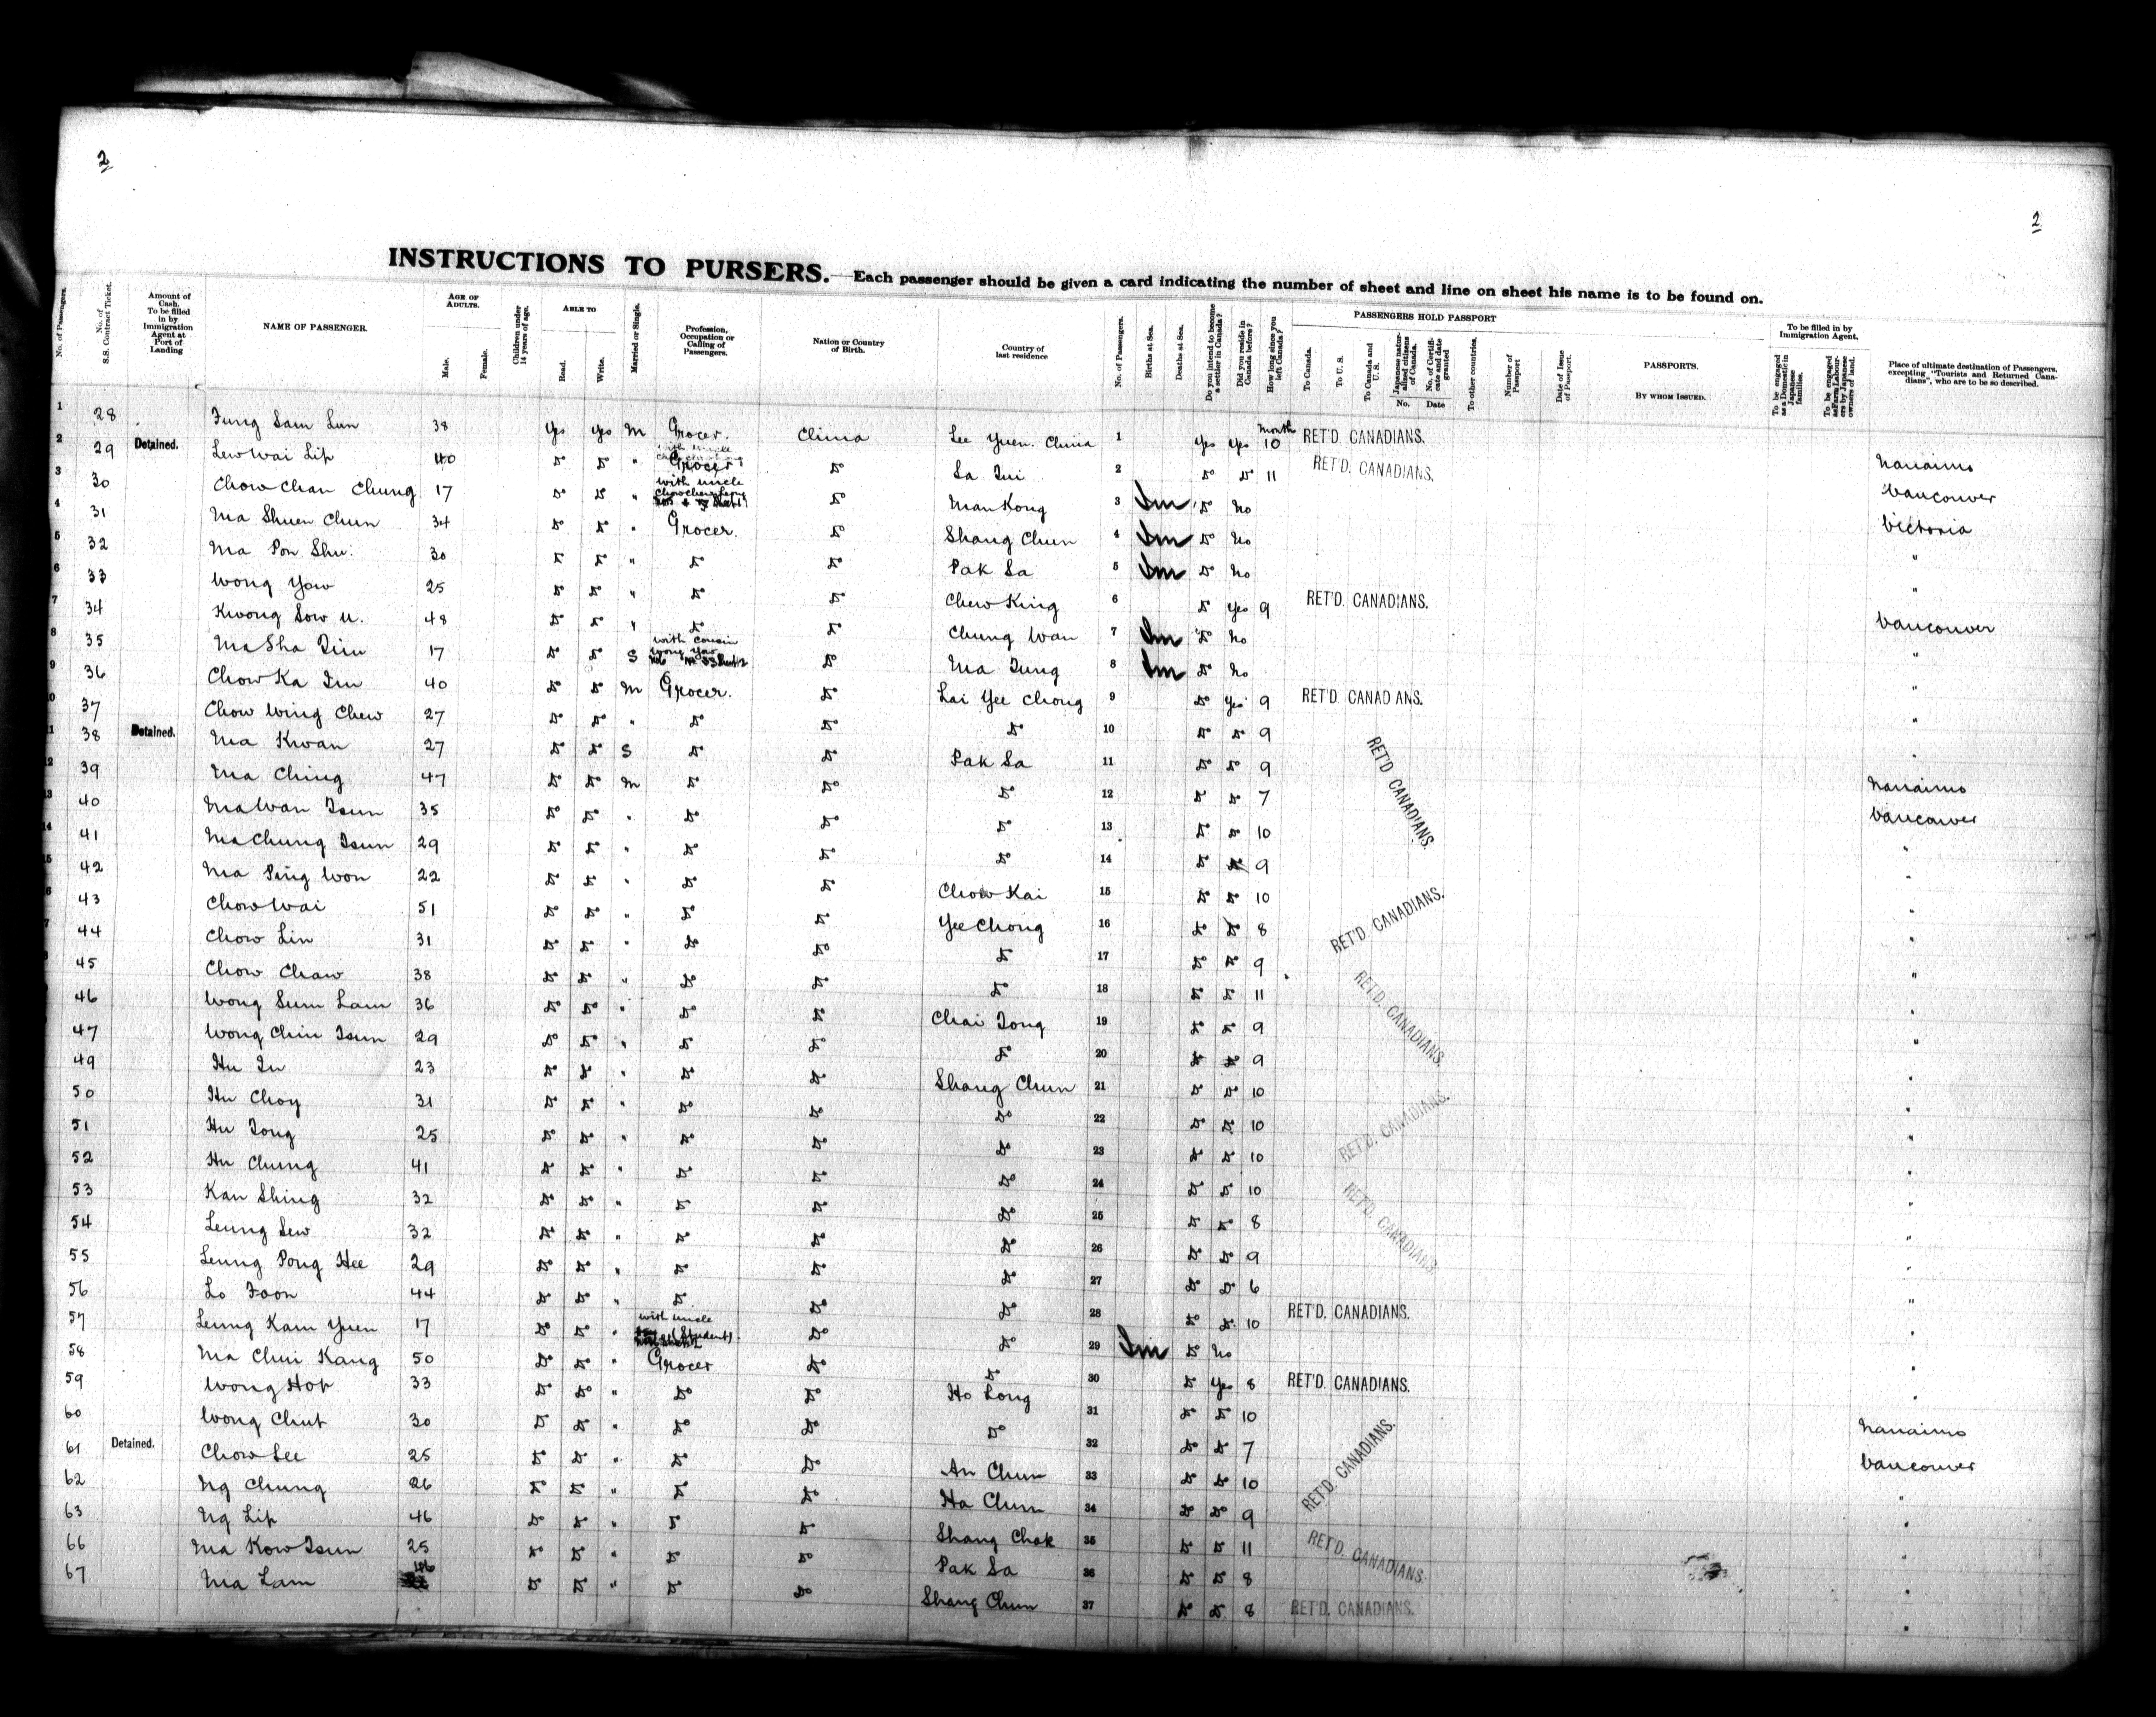 2
2
INSTRUCTIONS TO PURSERS.—Each passenger should be given a card indicating the number of sheet and line on sheet his name is to be found on.
No. of Passengers. No. of S.S. Contract Ticket. Amount of Cash. To be filled in by Immigration Agent at Port of Landing NAME OF PASSENGER. AGE OF ADULTS. Male. Female. Children under 14 years of age. ABLE TO Read. Write. Married or Single. Profession, Occupation or Calling of Passengers. Nation or Country of Birth. Country of last residence No. of Passengers. Births at Sea. Deaths at Sea. Do you intend to become a settler in Canada? Did you reside in Canada before? How long since you left Canada? PASSENGERS HOLD PASSPORT To Canada. To U. S. To Canada and U. S. Japanese naturalized citizens of Canada. No. of Certificate and date granted No. Date To other countries. Number of Passport Date of Issue of Passport. PASSPORTS. BY WHOM ISSUED. To be filled in by Immigration Agent. To be engaged as a Domestic in Japanese families. To be engaged as Farm Labourers by Japanese owners of land. Place of ultimate destination of Passengers, excepting "Tourists and Returned Canadians", who are to be so described.
1 28 Fung Sam Lun 38 Yes Yes M Grocer. China Lee Yuen. China 1 Yes Yes Month 10 RET'D. CANADIANS. Nanaimo
2 29 Detained. Lew Wai Lip 40 Do Do " Grocer Do Sa Tui 2 Do Do 11 RET'D. CANADIANS. Vancouver
3 30 Chow Chan Chung 17 Do Do " with uncle Do Man Kong 3 Im Do No Victoria
4 31 Ma Shuen Chun 34 Do Do " Grocer. Do Shang Chun 4 Im Do No "
5 32 Ma Pon Shu 30 Do Do " Do Do Pak Sa 5 Im Do No "
6 33 Wong Yow 25 Do Do " Do Do Chew King 6 Do Yes 9 RET'D. CANADIANS. Vancouver
7 34 Kwong Sow U. 48 Do Do " Do Do Chung Wan 7 Im Do No "
8 35 Ma Sha Tim 17 Do Do S with cousin Wong Yow Do Ma Tung 8 Im Do No "
9 36 Chow Ka Tin 40 Do Do M Grocer. Do Lai Yee Chong 9 Do Yes 9 RET'D. CANADIANS. "
10 37 Chow Wing Chew 27 Do Do " Do Do Do 10 Do Do 9 "
11 38 Detained. Ma Kwan 27 Do Do S Do Do Pak Sa 11 Do Do 9 Nanaimo
12 39 Ma Ching 47 Do Do M Do Do Do 12 Do Do 7 RET'D. CANADIANS. Vancouver
40 Ma Wan Tsun 35 Do Do " Do Do Do 13 Do Do 10 "
41 Ma Chung Tsun 29 Do Do " Do Do Do 14 Do Do 9 "
42 Ma Ping Won 22 Do Do " Do Do Chow Kai 15 Do Do 10 "
43 Chow Wai 51 Do Do " Do Do Yee Chong 16 Do Do 8 RET'D. CANADIANS. "
44 Chow Lin 31 Do Do " Do Do Do 17 Do Do 9 "
45 Chow Chaw 38 Do Do " Do Do Do 18 Do Do 11 "
46 Wong Sum Lam 36 Do Do " Do Do Chai Tong 19 Do Do 9 RET'D. CANADIANS. "
47 Wong Chin Tsun 29 Do Do " Do Do Do 20 Do Do 9 "
49 Hu Tu 23 Do Do " Do Do Shang Chun 21 Do Do 10 "
50 Hu Choy 31 Do Do " Do Do Do 22 Do Do 10 RET'D. CANADIANS. "
51 Hu Tong 25 Do Do " Do Do Do 23 Do Do 10 "
52 Hu Chung 41 Do Do " Do Do Do 24 Do Do 10 "
53 Kan Shing 32 Do Do " Do Do Do 25 Do Do 8 RET'D. CANADIANS. "
54 Leung Lew 32 Do Do " Do Do Do 26 Do Do 9 "
55 Leung Pong Hee 29 Do Do " Do Do Do 27 Do Do 6 "
56 Lo Foon 44 Do Do " Do Do Do 28 Do Do 10 RET'D. CANADIANS. "
57 Leung Kam Yuen 17 Do Do " with uncle (Student) Do Do 29 Im Do No "
58 Ma Chui Kang 50 Do Do " Grocer Do Do 30 Do Yes 8 RET'D. CANADIANS. "
59 Wong Hop 33 Do Do " Do Do Ho Long 31 Do Do 10 Nanaimo
60 Wong Chut 30 Do Do " Do Do Do 32 Do Do 7 Vancouver
61 Detained. Chow Lee 25 Do Do " Do Do An Chun 33 Do Do 10 RET'D. CANADIANS. "
62 Ng Chung 26 Do Do " Do Do Ha Chun 34 Do Do 9 "
63 Ng Lip 46 Do Do " Do Do Shang Chak 35 Do Do 11 "
66 Ma Kow Tsun 25 Do Do " Do Do Pak Sa 36 Do Do 8 RET'D. CANADIANS. "
67 Ma Lam 46 Do Do " Do Do Shang Chun 37 Do Do 8 RET'D. CANADIANS. "